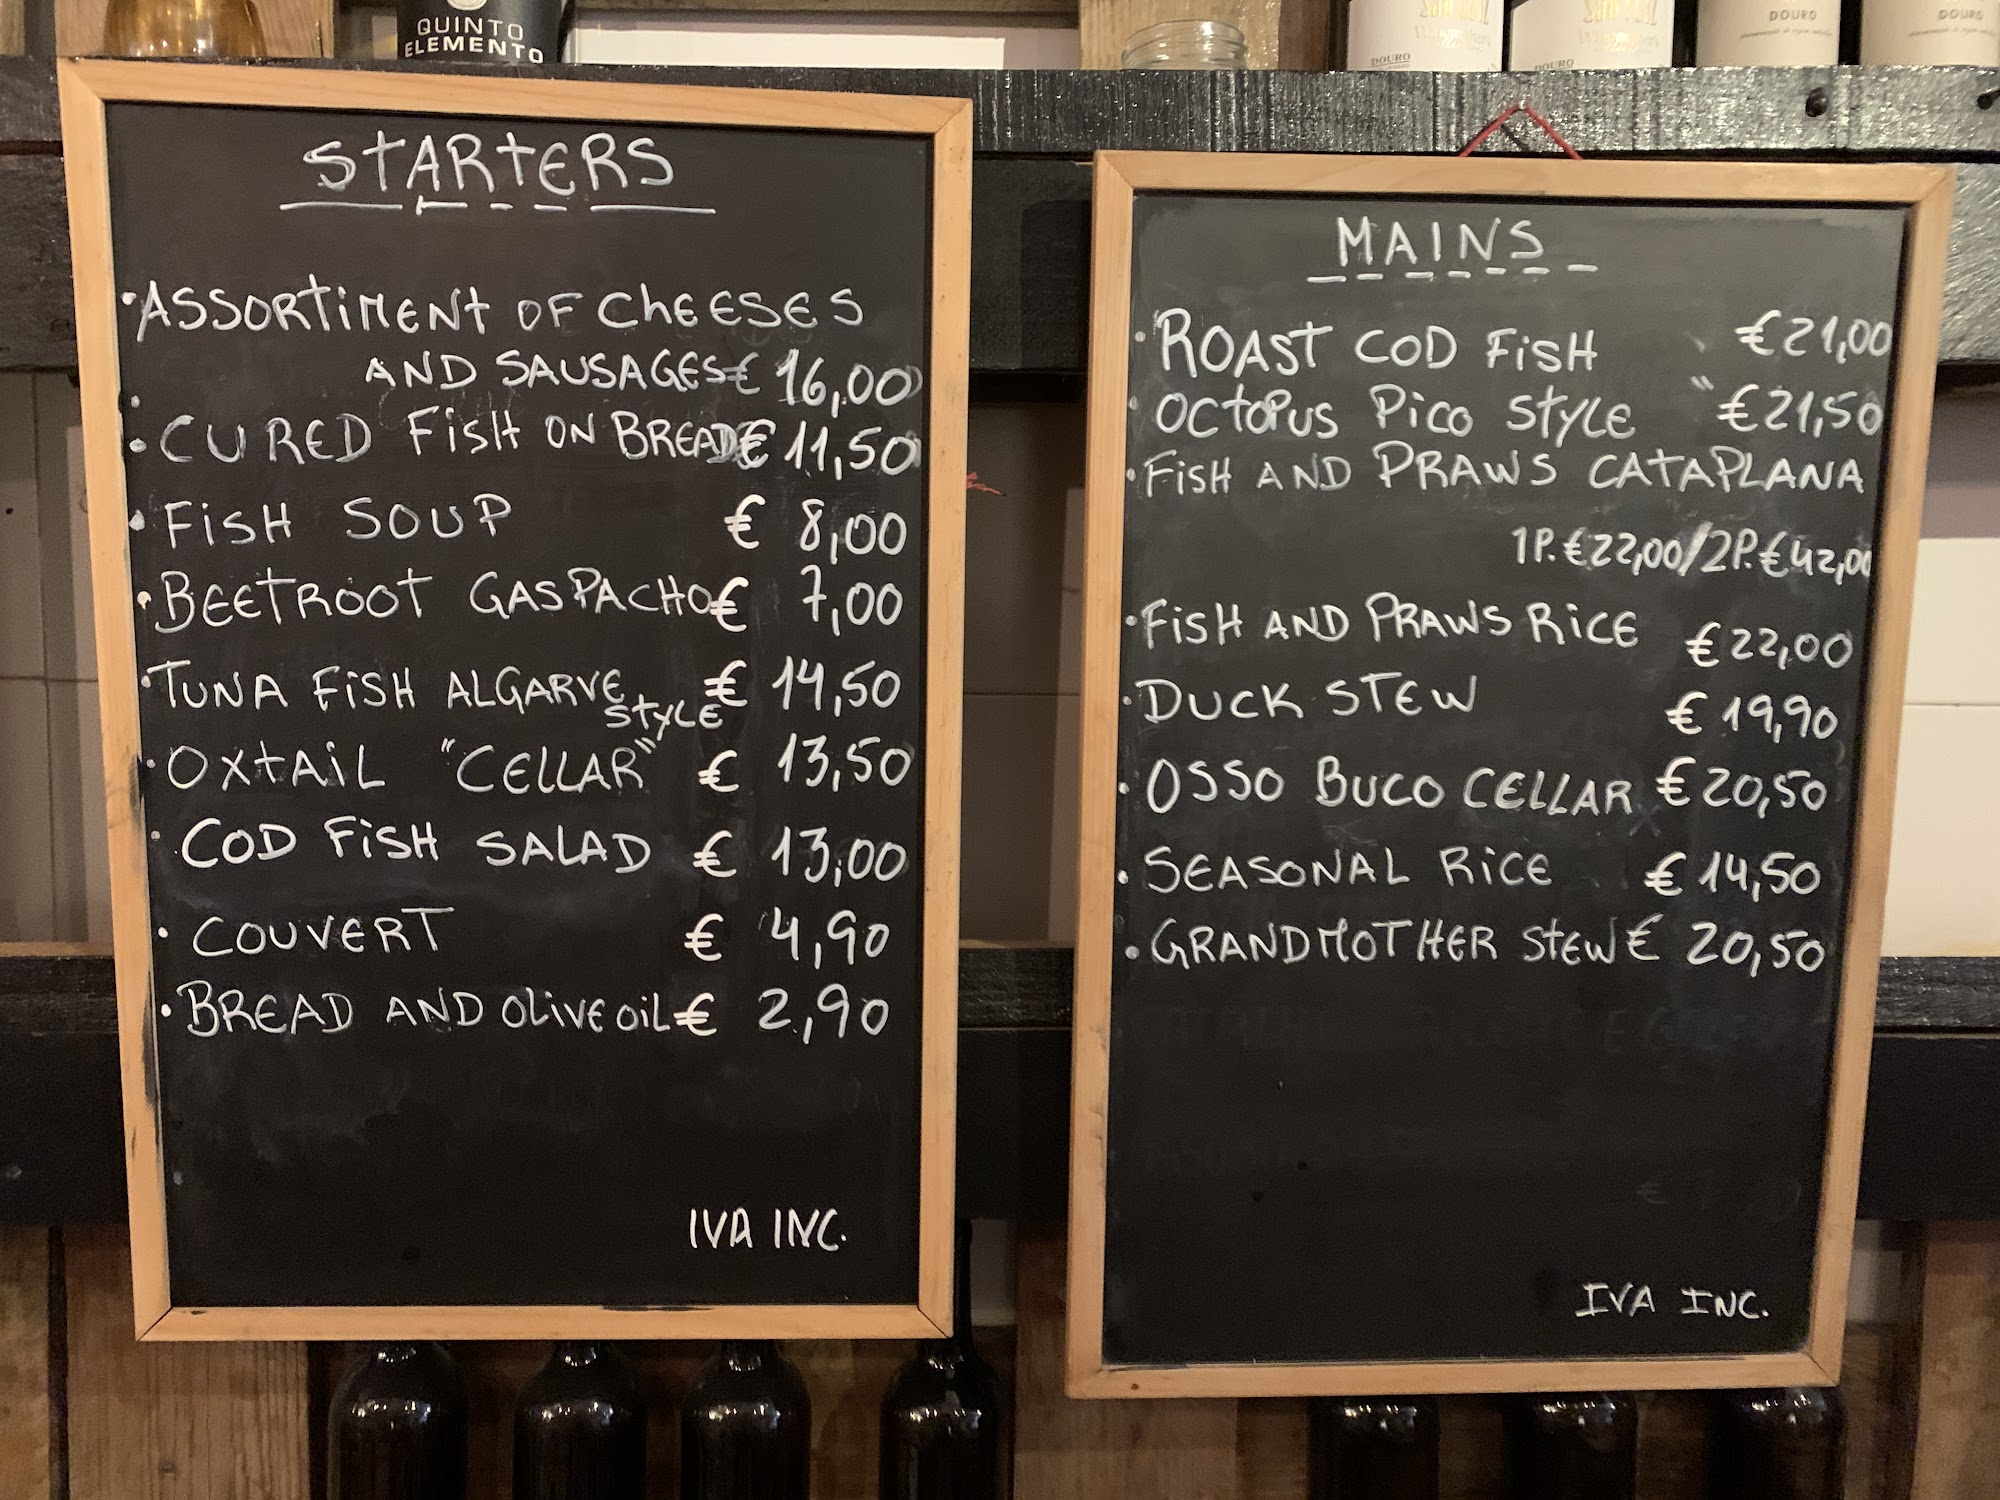 QUINTO
ELEMENTO
DOURO
DOURO
DOURO
DOURO
STARTERS
ASSORTIMENT OF CHEESES
AND SAUSAGES € 16,00
CURED FISH ON BREAD € 11,50
FISH SOUP € 8,00
BEETROOT GASPACHO € 7,00
TUNA FISH ALGARVE STYLE € 14,50
OXTAIL "CELLAR" € 13,50
COD FISH SALAD € 13,00
COUVERT € 4,90
BREAD AND OLIVE OIL € 2,90
IVA INC.
MAINS
ROAST COD FISH €21,00
OCTOPUS PICO STYLE " €21,50
FISH AND PRAWS CATAPLANA
1P. €22,00/2P. €42,00
FISH AND PRAWS RICE €22,00
DUCK STEW € 19,90
OSSO BUCO CELLAR €20,50
SEASONAL RICE € 14,50
GRANDMOTHER STEW € 20,50
IVA INC.